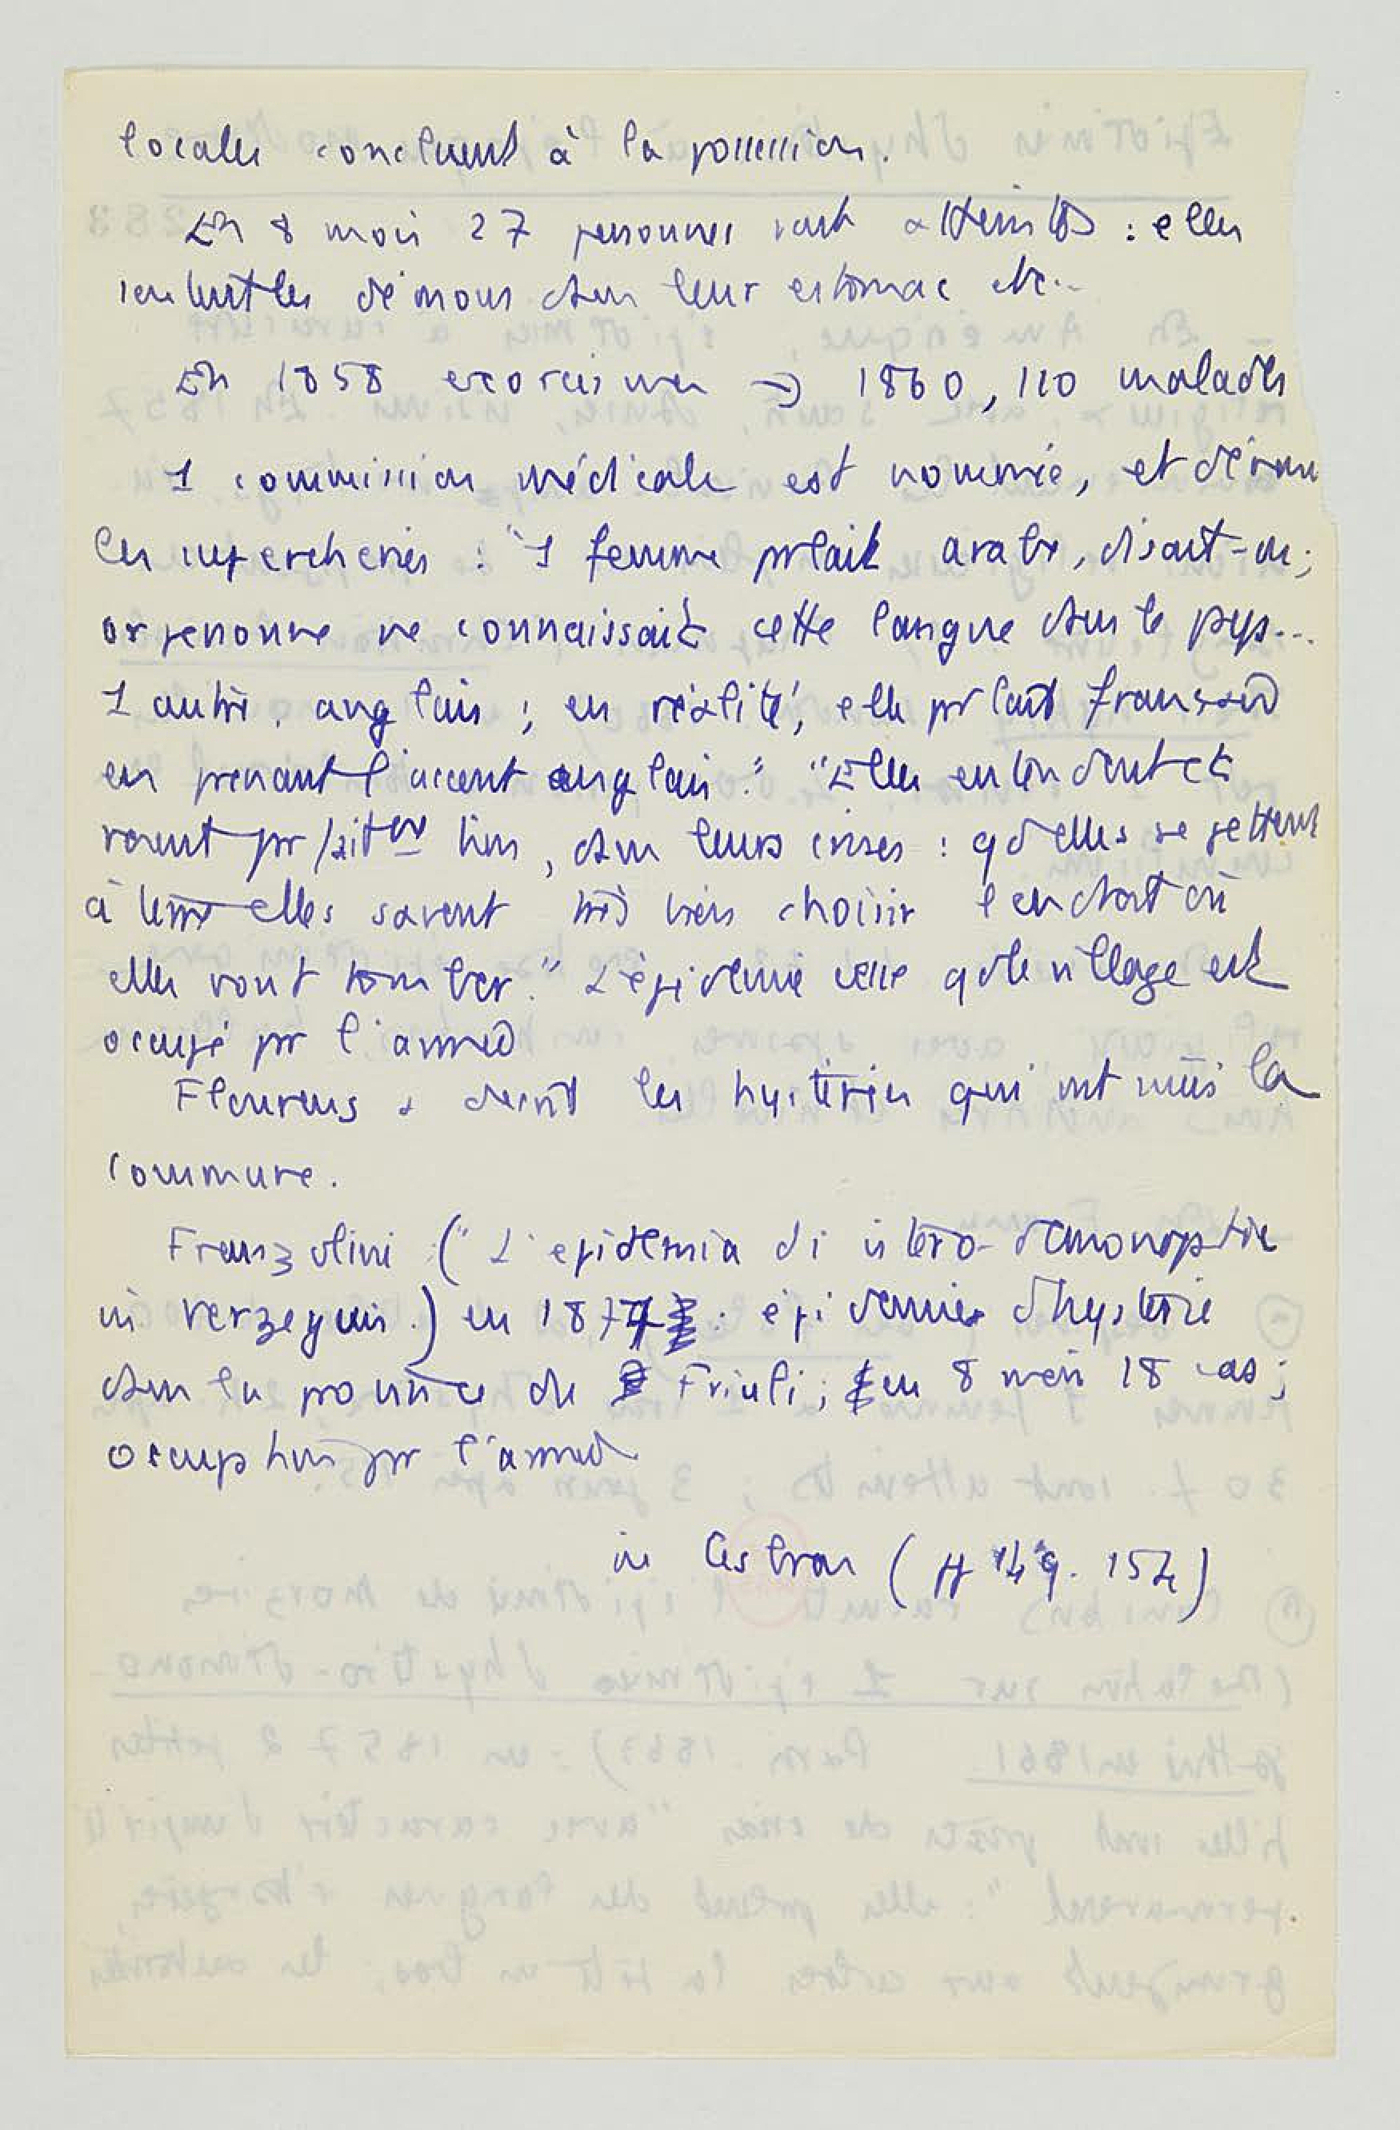 locales concluent à la possession.
En 8 mois 27 personnes sont atteintes : elles
sentent les démons dans leur estomac etc..
En 1858 exorcismes → 1860, 110 malades
1 commission médicale est nommée, et dénonce
les supercheries : "1 femme prlait arabe, disait-on ;
or personne ne connaissait cette langue dans le pays...
1 autre, anglais ; en réalité, elle prlait français
en prenant l'accent anglais." "Elles entendent et
voient pr/ait bien, dans leurs crises : qd elles se jettent
à terre elles savent très bien choisir l'endroit où
elles vont tomber." L'épidémie cesse qd le village est
occupé pr l'armée
Flourens a décrit les hystéries qui ont suivi la
commune.
Franzolini ("L'epidemia di istero-demonopatie
in verzegnis.) en 1877 : épidémies d'hystérie
dans la province du Friuli ; en 8 mois 18 cas ;
occupation pr l'armée
in (p 149. 154)